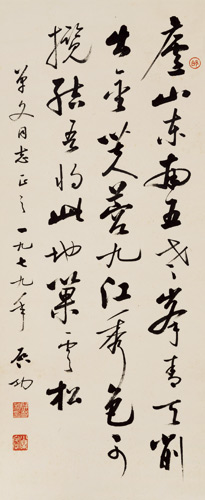 廬山東南五老峯青天削
出金芙蓉九江秀色可
攬結吾將此地巢雲松
文同志正之一九七九年 啟功